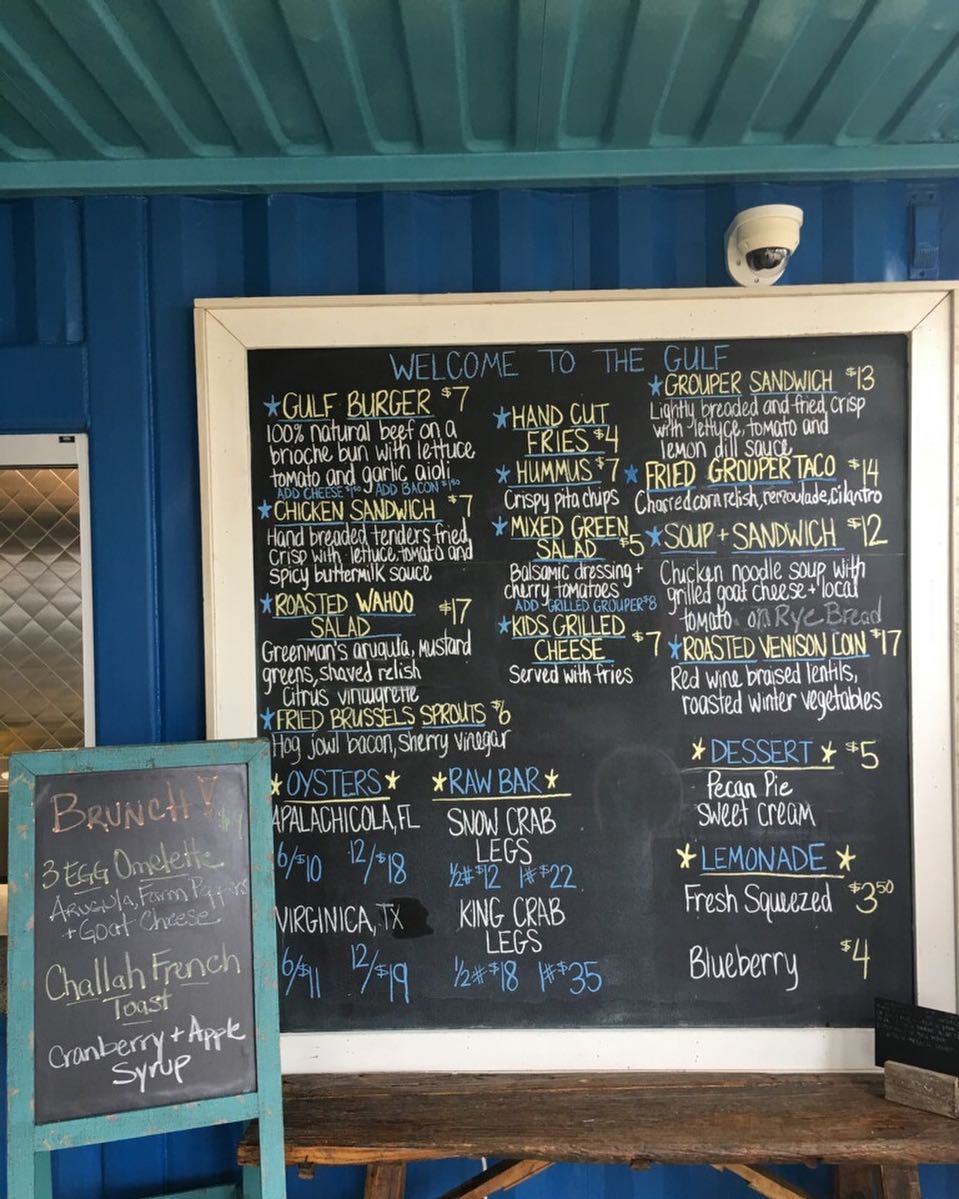 WELCOME TO THE GULF
★GULF BURGER $7
100% natural beef on a
brioche bun with lettuce
tomato and garlic aioli
ADD CHEESE $1.50 ADD BACON $1.50
★CHICKEN SANDWICH $7
Hand breaded tenders fried,
crisp with lettuce, tomato and
spicy buttermilk sauce
★ROASTED WAHOO
SALAD $17
Greenman's arugula, mustard
greens, shaved relish
Citrus vinaigrette
★FRIED BRUSSELS SPROUTS $6
Hog jowl bacon, sherry vinegar
★OYSTERS★
APALACHICOLA, FL
6/$10 12/$18
VIRGINICA, TX
6/$11 12/$19
★HAND CUT
FRIES $4
★HUMMUS $7
Crispy pita chips
★MIXED GREEN
SALAD $5
Balsamic dressing +
cherry tomatoes
ADD GRILLED GROUPER $8
★KIDS GRILLED
CHEESE $7
Served with fries
★RAW BAR★
SNOW CRAB
LEGS
½# $12 1# $22
KING CRAB
LEGS
½# $18 1# $35
★GROUPER SANDWICH $13
Lightly breaded and fried, crisp
with lettuce, tomato and
lemon dill sauce
★FRIED GROUPER TACO $14
Charred corn relish, remoulade, cilantro
★SOUP + SANDWICH $12
Chicken noodle soup with
grilled goat cheese + local
tomato on Rye Bread
★ROASTED VENISON LOIN $17
Red wine braised lentils,
roasted winter vegetables
★DESSERT★ $5
Pecan Pie
Sweet Cream
★LEMONADE★
Fresh Squeezed $3.50
Blueberry $4
BRUNCH!
$9
3 EGG Omelette
Arugula, Farm Peppers
+ Goat Cheese
Challah French
Toast
Cranberry + Apple
Syrup